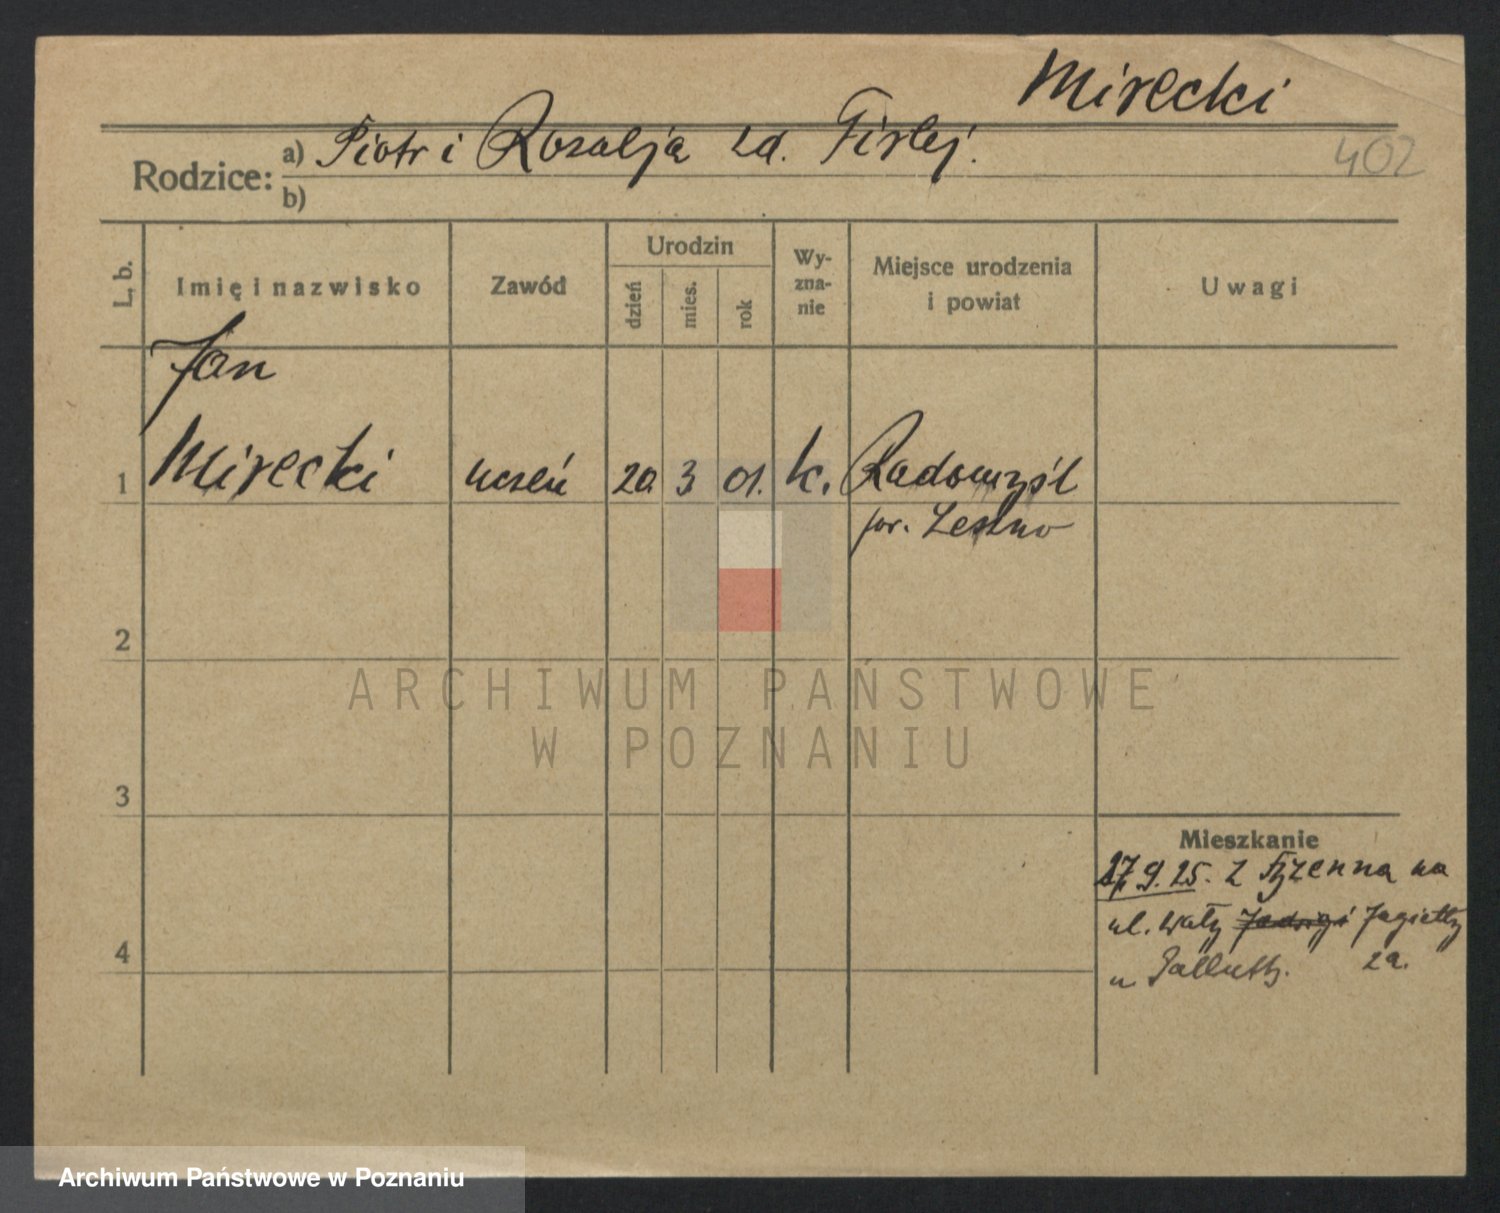 Mirecki
402
Rodzice:
a) Piotr i Rozalja zd. Firlej.
b)
L. b.
Imię i nazwisko
Zawód
Urodzin
dzień
mies.
rok
Wy-
zna-
nie
Miejsce urodzenia
i powiat
Uwagi
Jan
1 Mirecki uczeń 20. 3 01. k. Radomyśl
pow. Leszno
2
ARCHIWUM PAŃSTWOWE
W POZNANIU
3
Mieszkanie
17. 9. 25. z na
ul. Wały Jadwigi Jagiełły
4
u 2a.
Archiwum Państwowe w Poznaniu